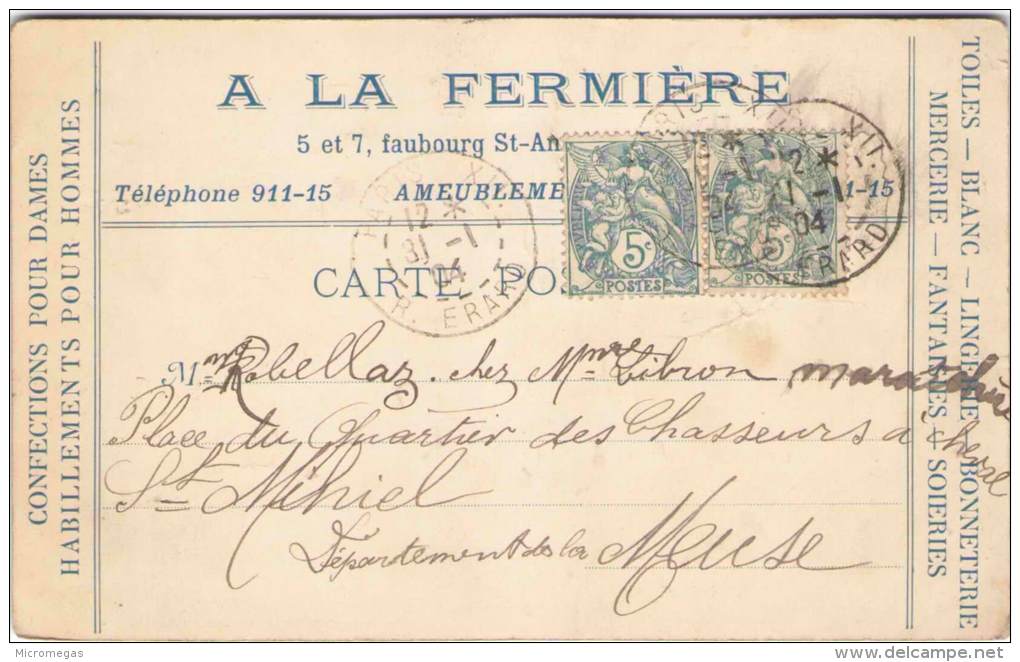 A LA FERMIÈRE
5 et 7, faubourg St-An
Téléphone 911-15 AMEUBLEME 1-15
CARTE POS
CONFECTIONS POUR DAMES
HABILLEMENTS POUR HOMMES
TOILES — BLANC — LINGERIE — BONNETERIE
MERCERIE — FANTAISIES — SOIERIES
PARIS XII
12 *
31 -1
04
R. ERARD
PARIS XII
12 *
31 -1
04
R. ERARD
5c
POSTES
5c
POSTES
Mme Robellaz. chez Mme Libron maraichère
Place du Quartier des Chasseurs à cheval
St Mihiel
Département de la Meuse
Micromegas
delcampe.net